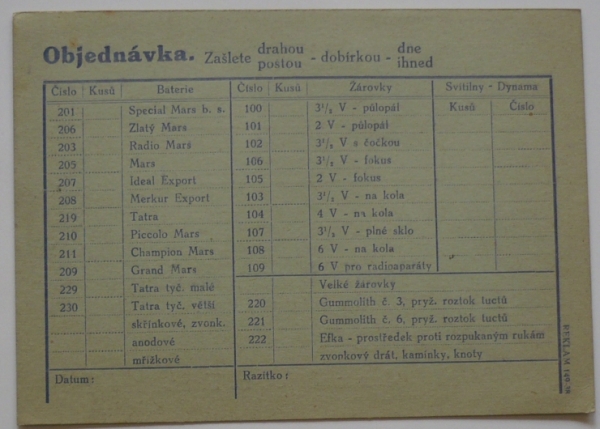 Objednávka. Zašlete drahou poštou - dobírkou - dne ihned
Číslo Kusů Baterie Číslo Kusů Žárovky Svítilny - Dynama
Kusů Číslo
201 Special Mars b. s. 100 3½ V - půlopál
206 Zlatý Mars 101 2 V - půlopál
203 Radio Mars 102 3½ V s čočkou
205 Mars 106 3½ V - fokus
207 Ideal Export 105 2 V - fokus
208 Merkur Export 103 3½ V - na kola
219 Tatra 104 4 V - na kola
210 Piccolo Mars 107 3½ V - plné sklo
211 Champion Mars 108 6 V - na kola
209 Grand Mars 109 6 V pro radioaparáty
229 Tatra tyč. malé Velké žárovky
230 Tatra tyč. větší 220 Gummolith č. 3, pryž. roztok tuctů
skřínkové, zvonk. 221 Gummolith č. 6, pryž. roztok tuctů
anodové 222 Efka - prostředek proti rozpukaným rukám
mřížkové zvonkový drát, kamínky, knoty
Datum: Razítko:
REKLAM